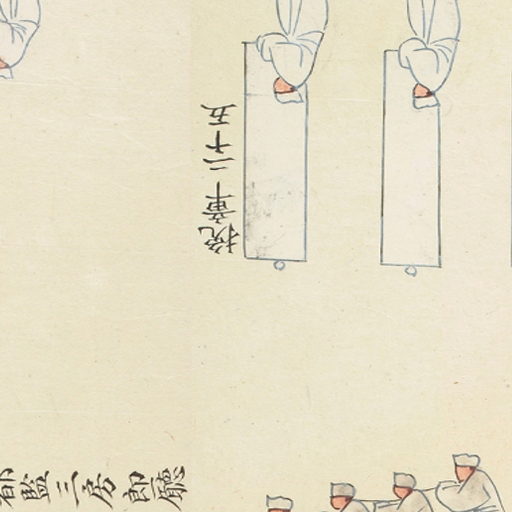 挽章二十五
都監三房郎廳